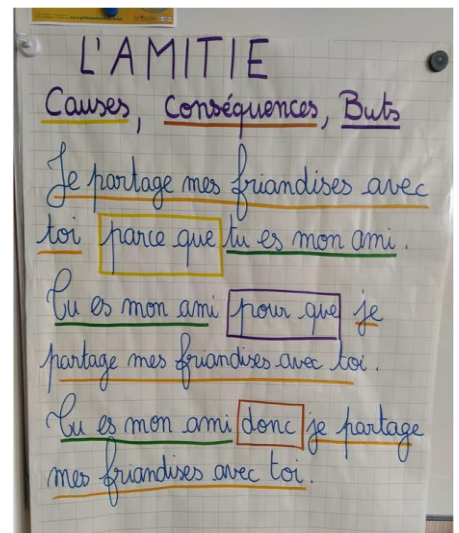 L'AMITIE
Causes, Conséquences, Buts
Je partage mes friandises avec
toi parce que tu es mon ami.
Tu es mon ami pour que je
partage mes friandises avec toi.
Tu es mon ami donc je partage
mes friandises avec toi.